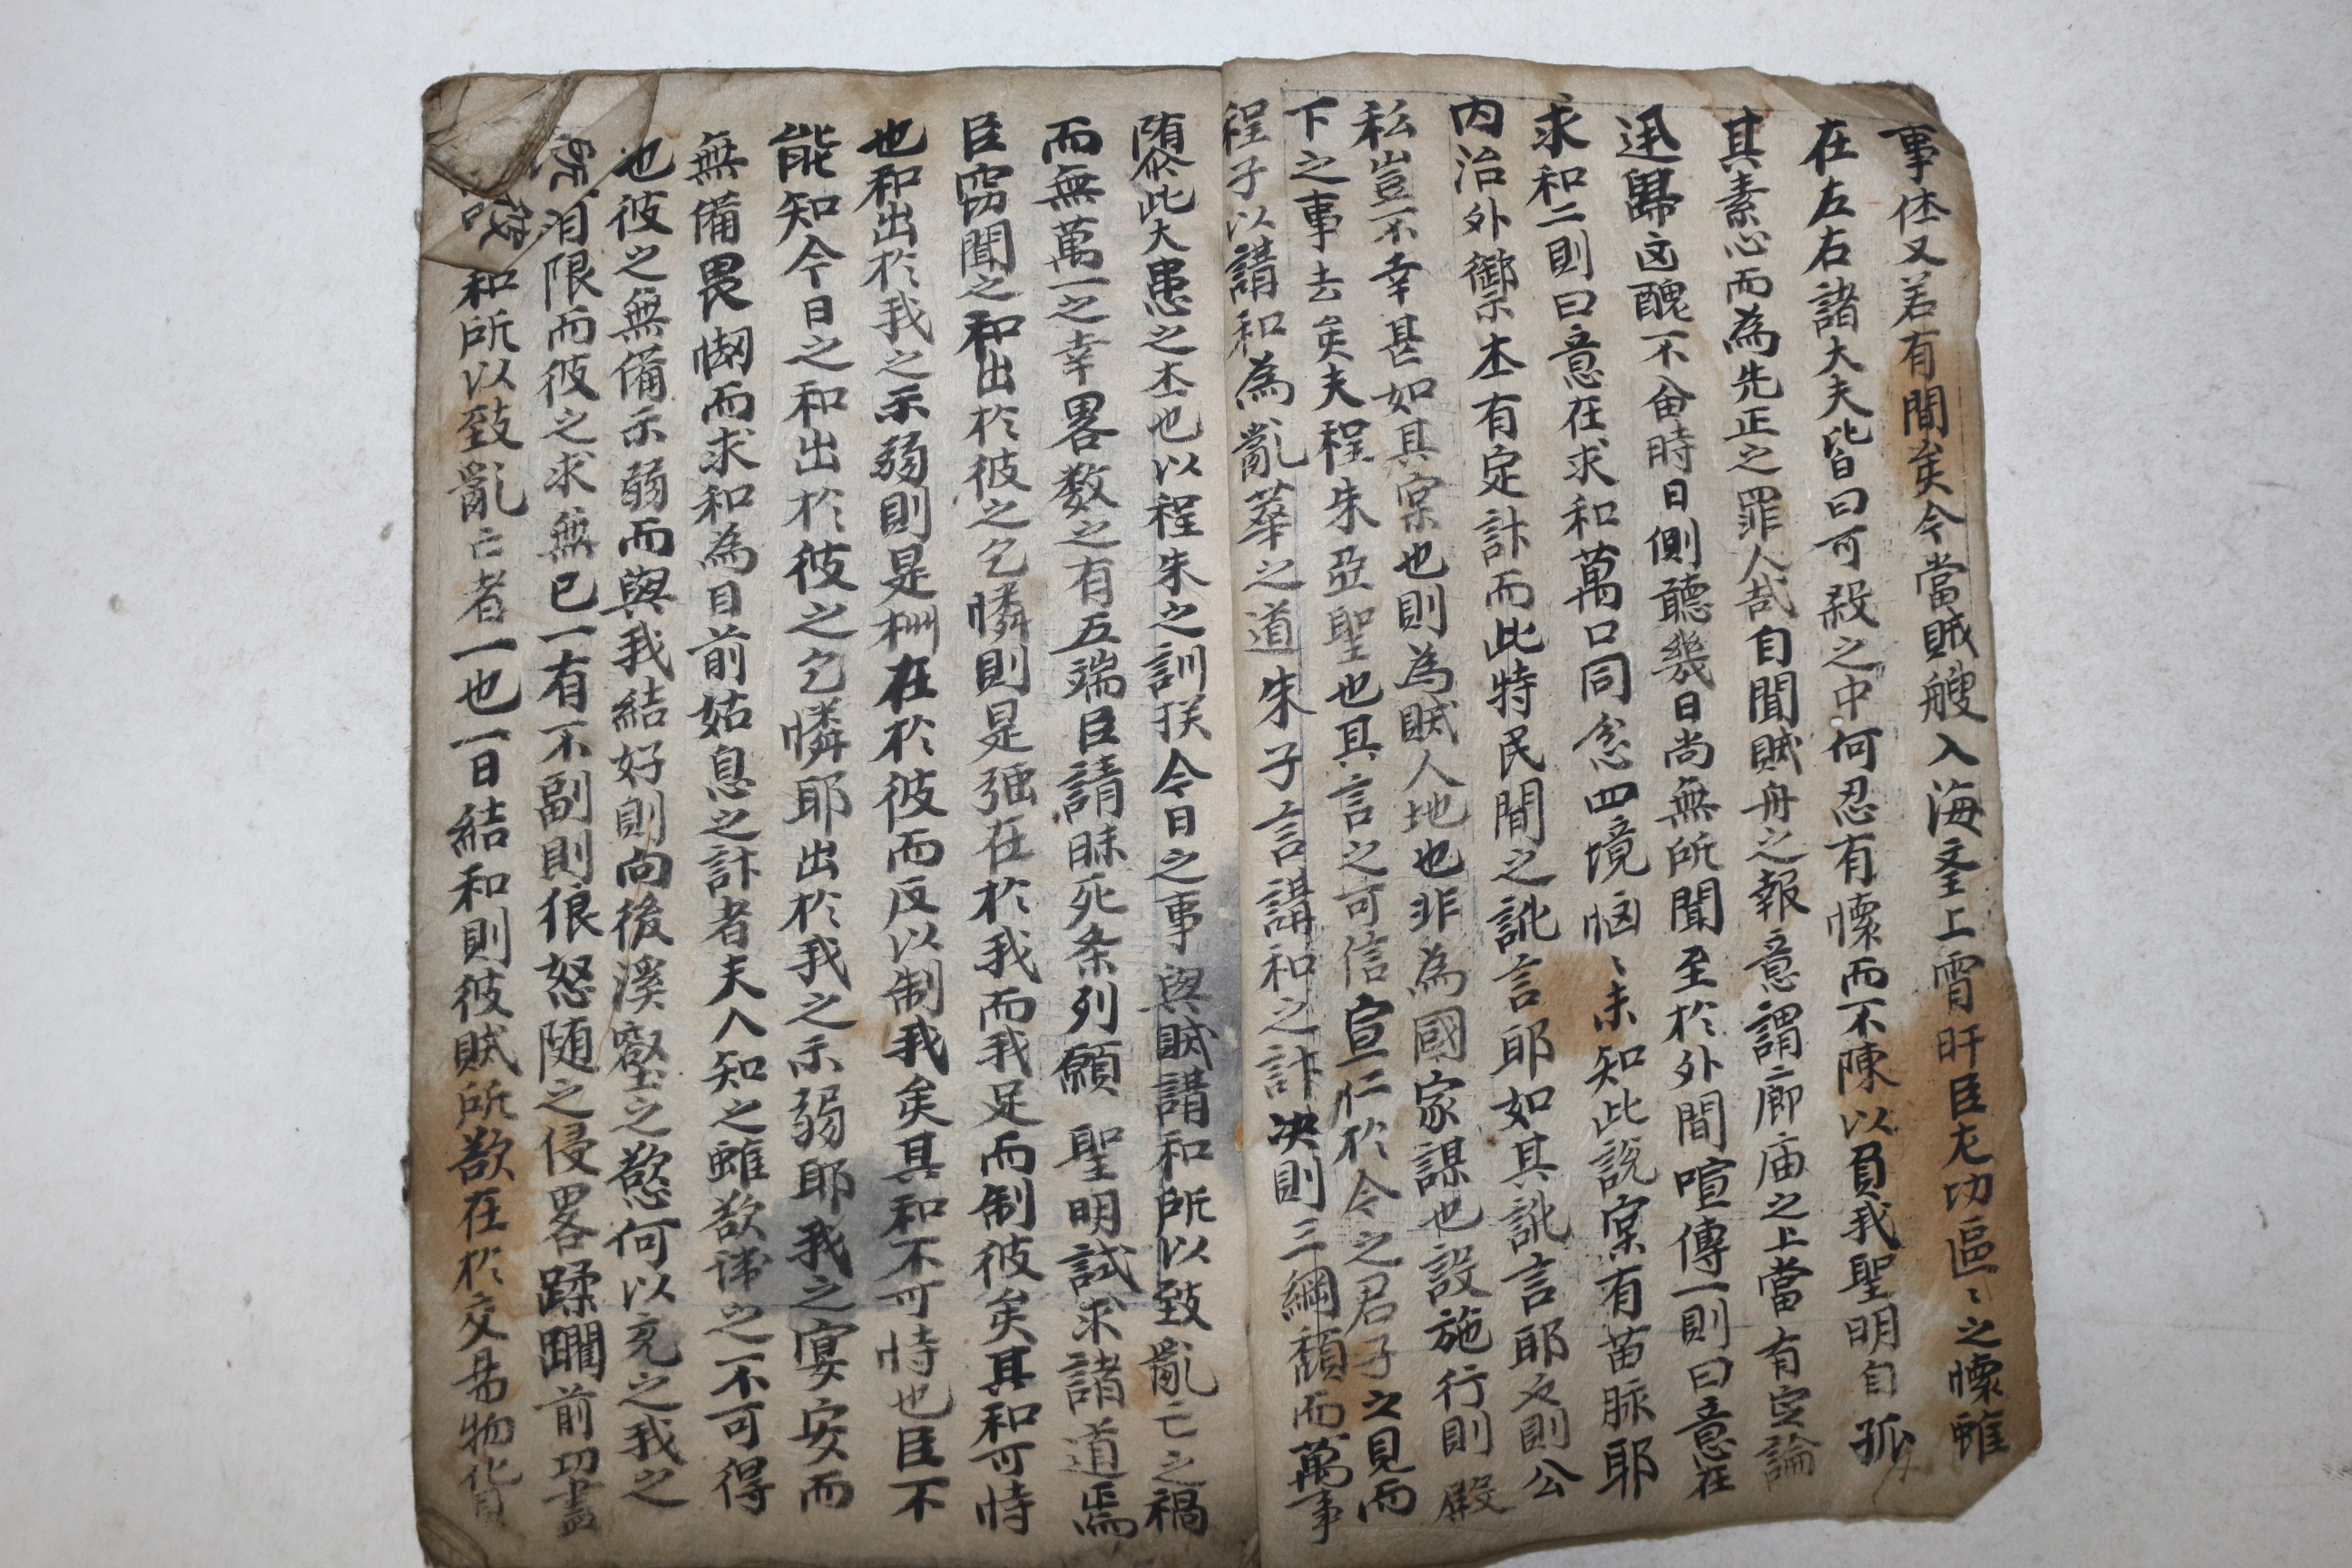 事体又若有間矣今當賊艘入海奎上宵旰臣尤切區〻之懷雖
在左右諸大夫皆曰可殺之中何忍有懷而不陳以負我聖明自孤
其素心而為先正之罪人哉自聞賊舟之報意謂廊庙之上當有定論
迅歸凶醜不侖時日側聽幾日尚無所聞至於外間喧傳一則曰意在
求和二則曰意在求和萬口同忿四境恼〻未知此說窠有苗脉耶
内治外禦本有定計而此特民間之訛言耶如其訛言耶又則公
私豈不幸甚如其窠也則為賊人地也非為國家謀也設施行則殿
下之事去矣夫程朱亞聖也其言之可信宣仁於今之君子之見而
程子以講和為亂華之道朱子言講和之計决則三綱頹而萬事
隳條此大患之本也以程朱之訓揆今日之事與賊講和所以致亂亡之禍
而無萬一之幸畧数之有五端臣請昧死条列願 聖明試求諸道焉
臣窃聞之和出於彼之乞憐則是强在於我而我足而制彼矣其和可恃
也和出於我之示弱則是柵在於彼而反以制我矣其和不可恃也臣不
能知今日之和出於彼之乞憐耶出於我之示弱耶我之宴安而
無備畏㥘而求和為目前姑息之計者夫人知之雖欲諱之不可得
也彼之無備示弱而與我結好則向後溪壑之慾何以充之我之
有限而彼之求無已一有不副則狼怒随之侵畧蹂躙前功盡
和所以致亂亡者一也一日結和則彼賊所欲在於交易物貨